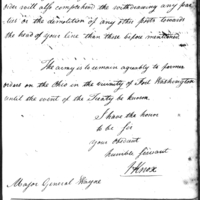 will also comprehend the withdrawing any par=
ties or the demolition of any other posts towards
the head of your line than those before mentioned.
The army is to remain agreeably to former
orders on the Ohio in the vicinity of Fort Washington
until the event of the Treaty be known
I have the honor
to be Sir
your obedient
humble servant
HKnox
Major General Wayne